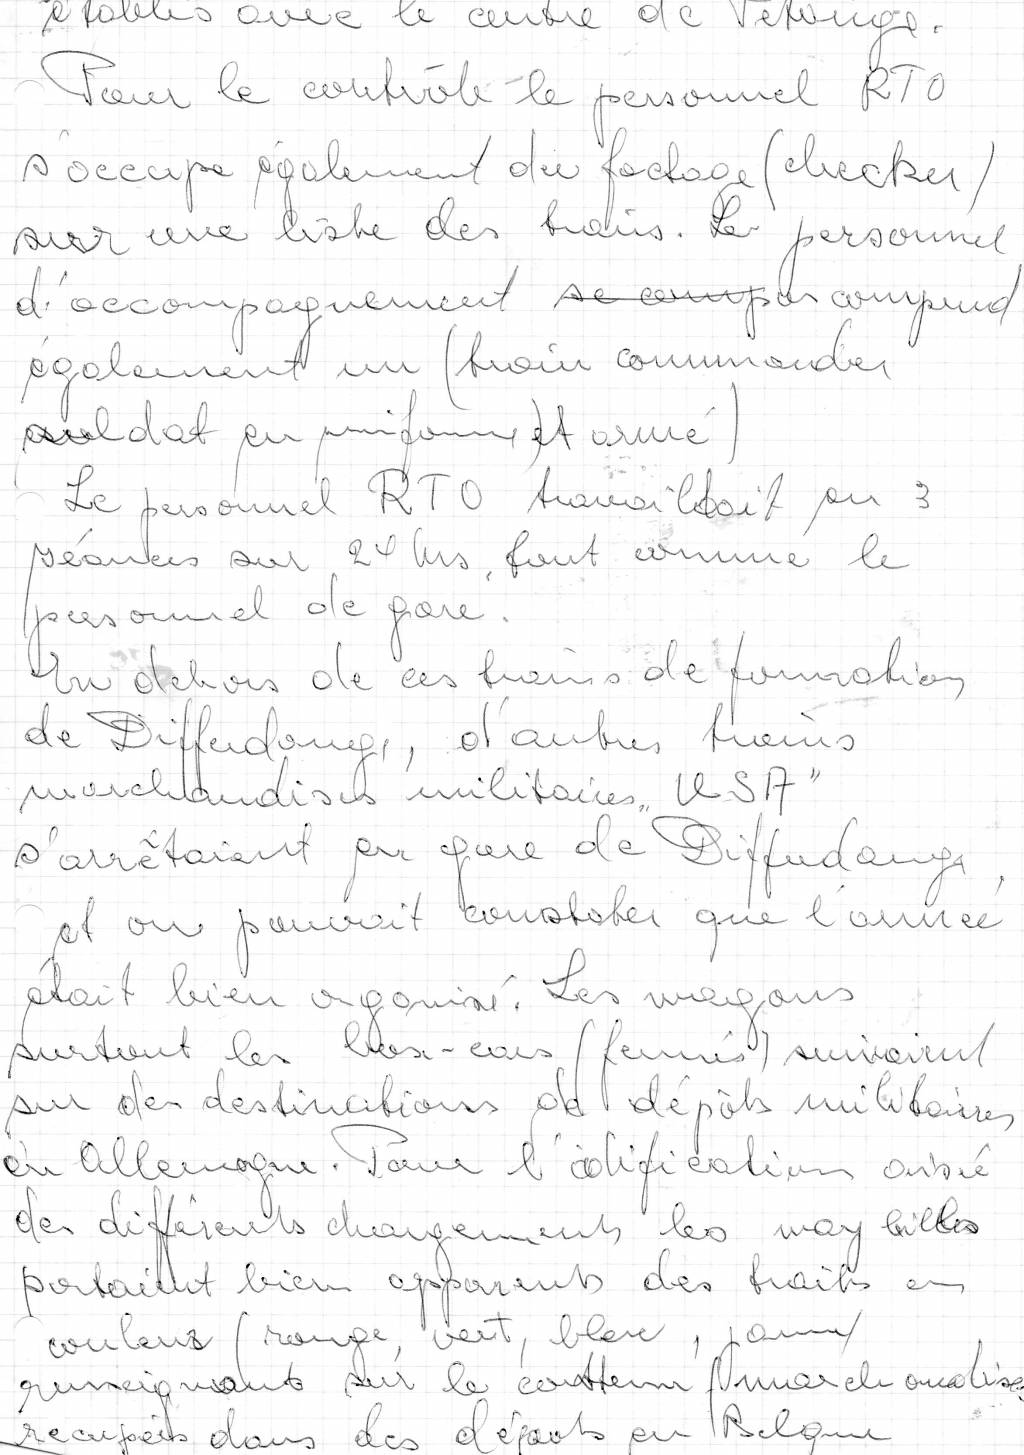 établis avec le centre de Pétange.
Pour le contrôle le personnel RTO
s'occupe également du factage (checker)
sur une liste des trains. Le personnel
d'accompagnement se compos comprend
également un (train commander
soldat en uniforme) et armé)
Le personnel RTO travaillait en 3
séances sur 24 hrs, tout comme le
personnel de gare.
En dehors de ces trains de formation
de Differdange, d'autres trains
marchandises militaires „USA"
s'arrêtaient en gare de Differdange,
et on pouvait constater que l'armée
était bien organisé. Les wagons
surtout les box-cars (fermés) suivaient
sur des destinations de dépôts militaires
en Allemagne. Pour l'idification aisée
des différents chargements les way billes
portaient bien apparents des traits en
couleurs (rouge, vert, bleu, jaune)
renseignants sur le contenu (marchandises
recupérés dans des dépots en Belgique